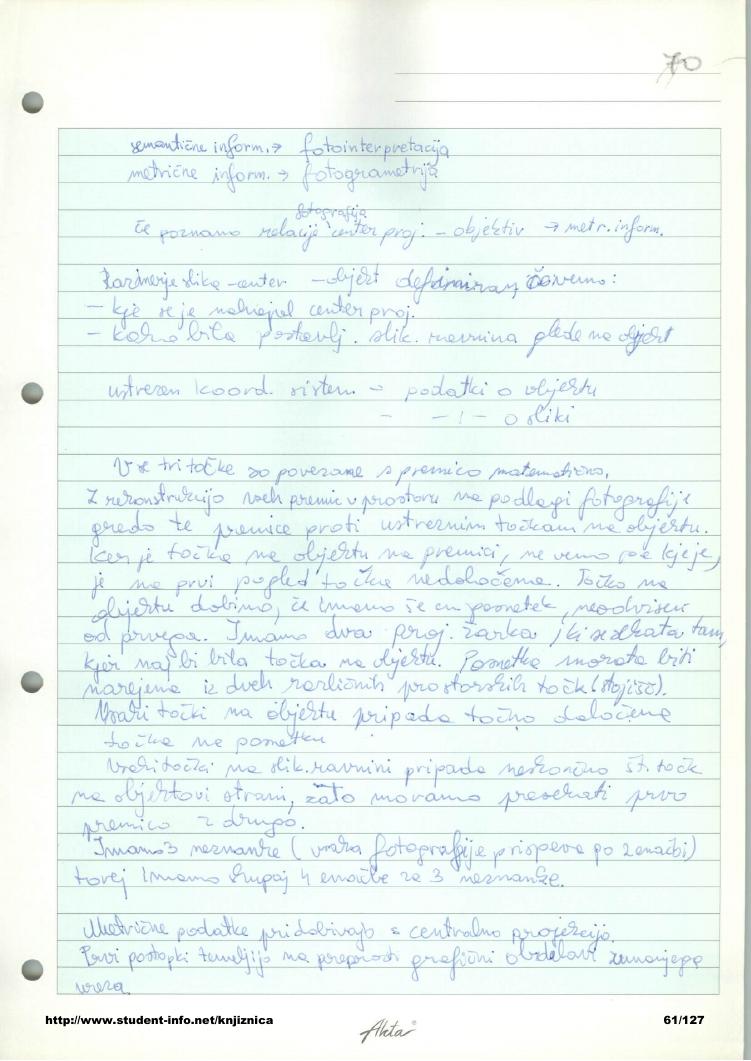 70
semantične inform. → fotointerpretacija
metrične inform. → fotogrametrija
fotografija
če poznamo relacije center proj. – objektiv → metr. inform.
Razmerje slika – center – objekt definiran, če vemo:
– kje se je nahajal center proj.
– kako bila postavlj. slik. ravnina glede na objekt
ustrezen koord. sistem – podatki o objektu
– – ! – o sliki
Vse tri točke so povezane s premico matematično.
Z rekonstrukcijo vseh premic v prostoru na podlagi fotografije
gredo te premice proti ustreznim točkam na objektu.
Ker je točka na objektu na premici, ne vemo pa kje je,
je na prvi pogled točka nedoločena. Točko na
objektu dobimo, če imamo še en posnetek, neodvisen
od prvega. Imamo dva proj. žarka, ki se sekata tam,
kjer naj bi bila točka na objektu. Posnetka morata biti
narejena iz dveh različnih prostorskih točk (stojišč).
Vsaki točki na objektu pripada točno določena
točka na posnetku
Vsaki točki na slik. ravnini pripada neskončno št. točk
na objektovi strani, zato moramo presekati prvo
premico z drugo.
Imamo 3 neznanke (vsaka fotografije prispeva po 2 enačbi)
torej imamo skupaj 4 enačbe za 3 neznanke.
Metrične podatke pridobivajo s centralno projekcijo.
Prvi postopki temeljijo na preprosti grafični obdelavi zunanjega
http://www.student-info.net/knjiznica
Akta
61/127